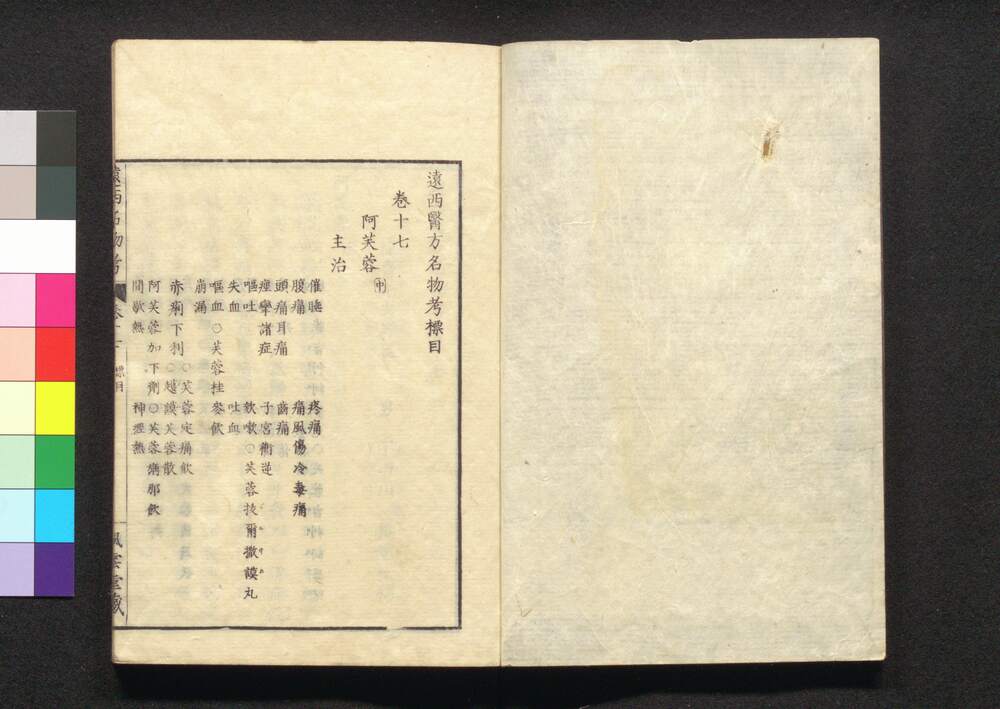 遠西醫方名物考標目
卷十七
阿芙蓉
主治
催睡 疼痛
腹痛 痛風傷冷毒痛
頭痛耳痛 齒痛
痙攣諸症 子宮衝逆
嘔吐 欬嗽○芙蓉抜爾撒謨丸
失血 吐血
嘔血○芙蓉桂參飲
崩漏
赤痢下利 ○芙蓉定痛飲
○越謨芙蓉散
阿芙蓉加下劑○芙蓉満那飲
間歇熱 神經熱
遠西名物考 卷十七 標目 風雲堂藏